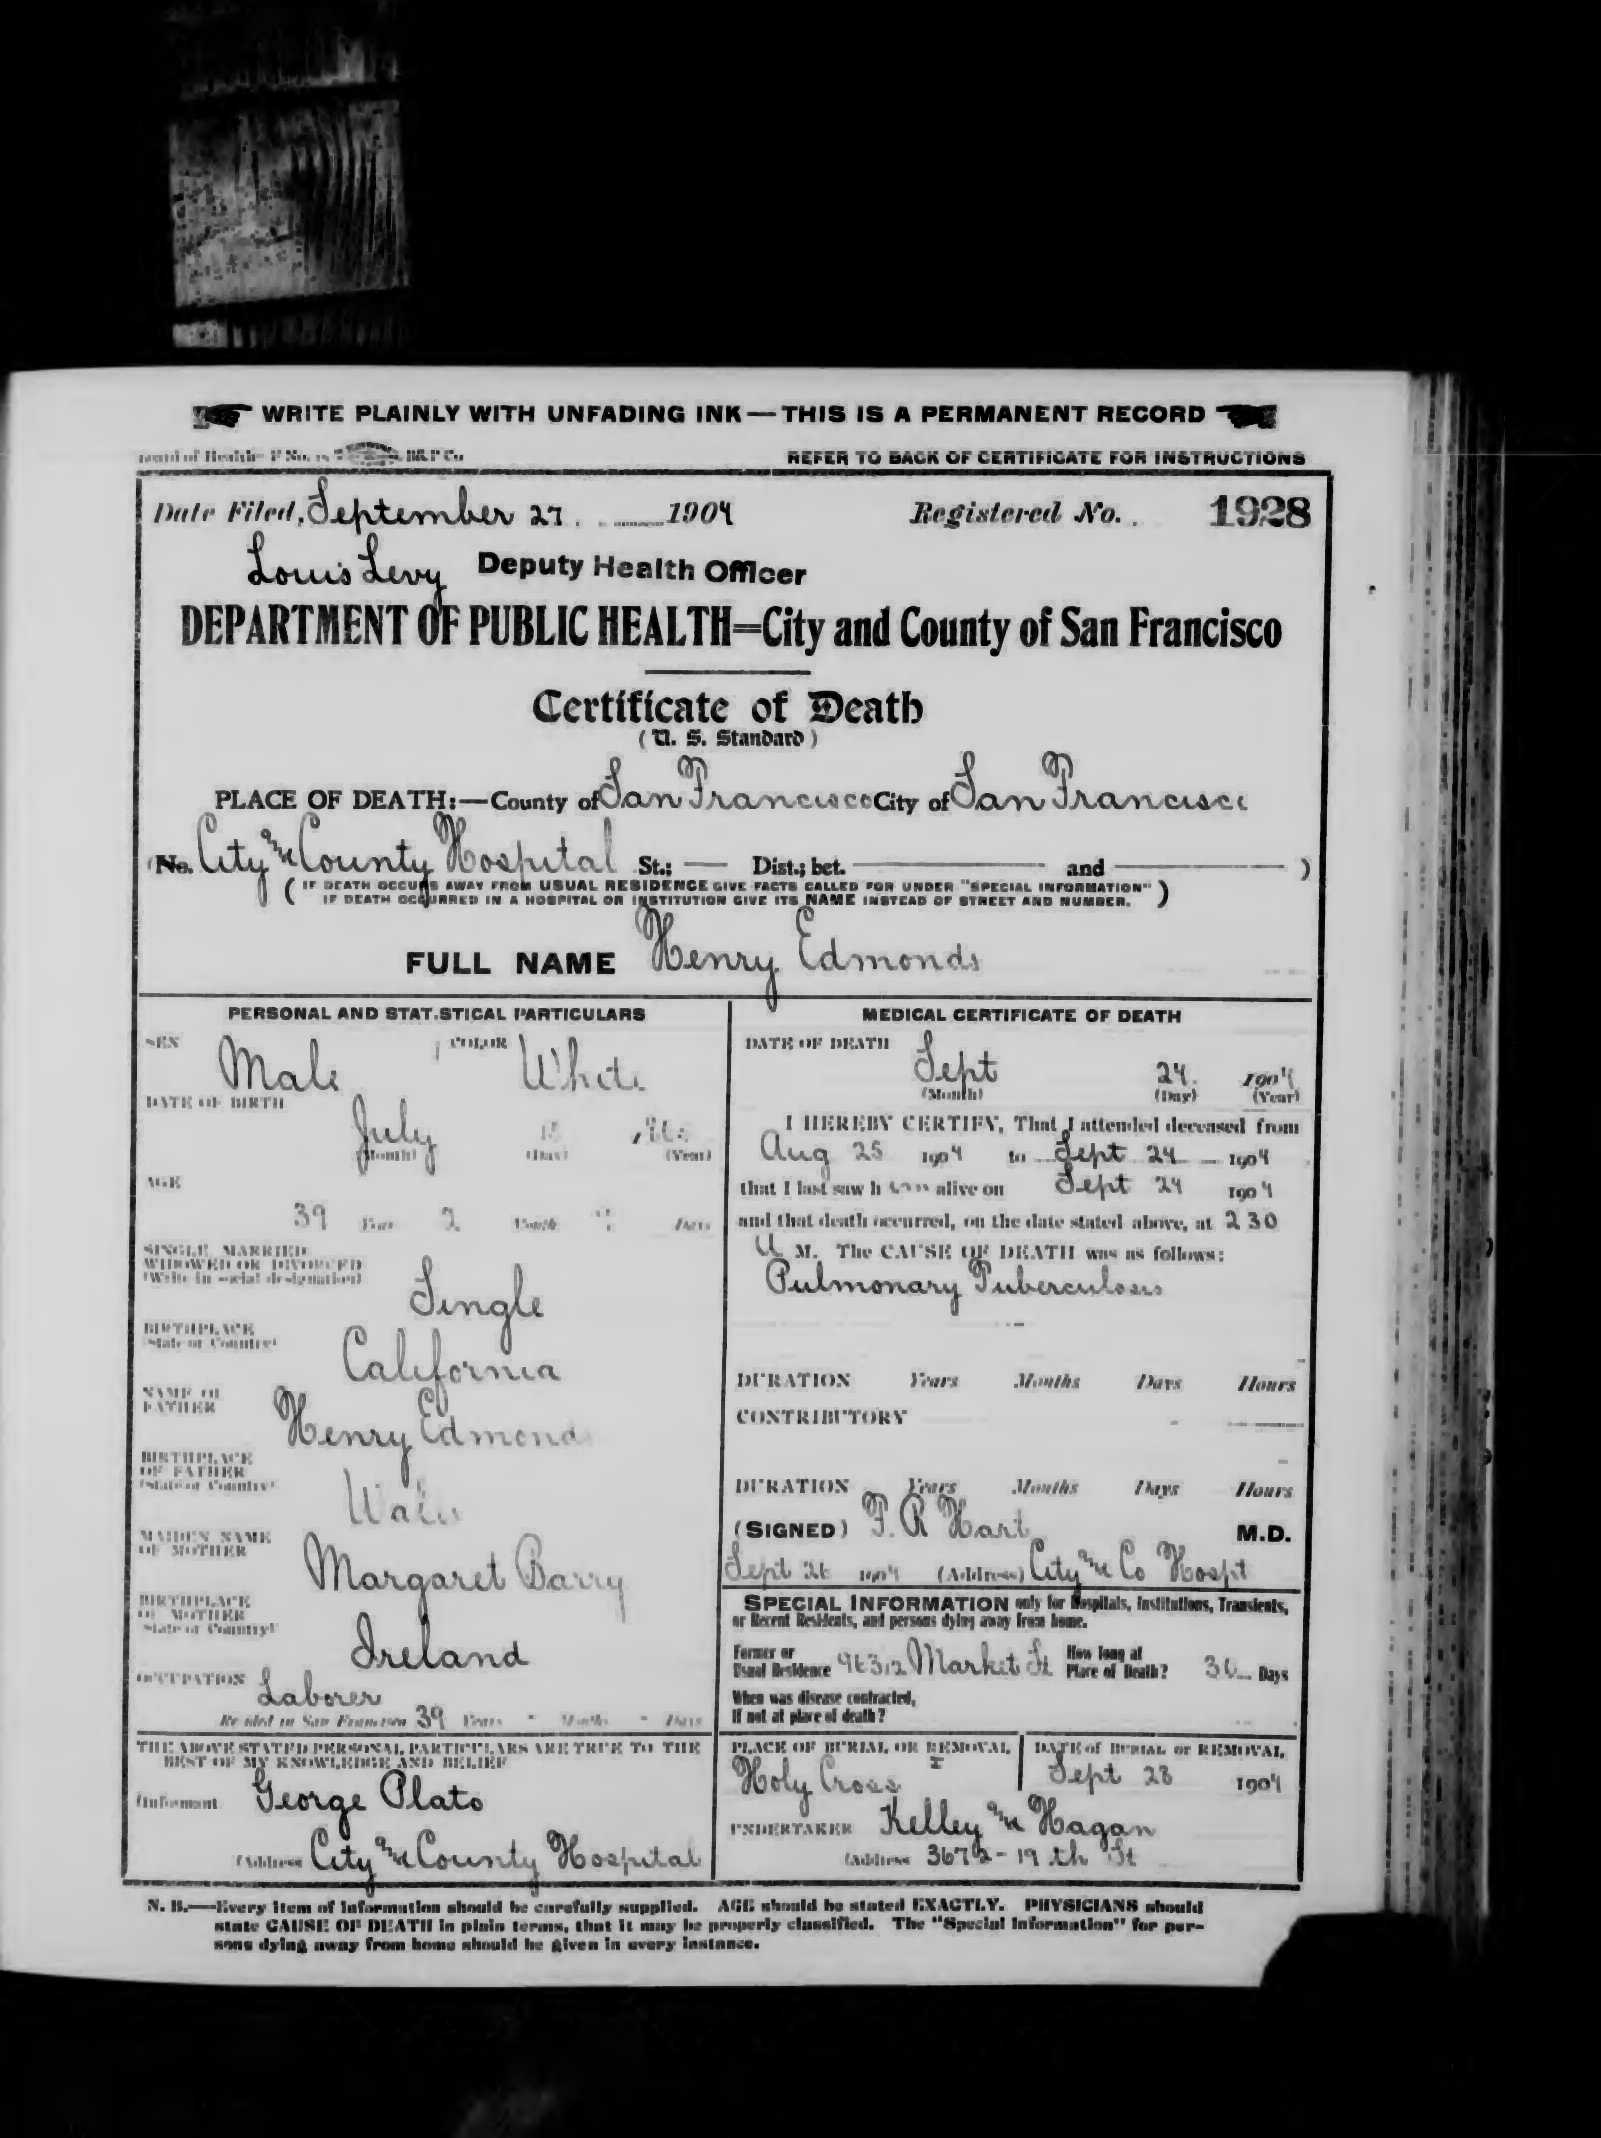 WRITE PLAINLY WITH UNFADING INK—THIS IS A PERMANENT RECORD
Board of Health- F No. B&P Co
REFER TO BACK OF CERTIFICATE FOR INSTRUCTIONS
Date Filed, September 27 1904 Registered No. 1928
Louis Levy Deputy Health Officer
DEPARTMENT OF PUBLIC HEALTH=City and County of San Francisco
Certificate of Death
(U. S. Standard)
PLACE OF DEATH:—County of San Francisco City of San Francisco
(No. City and County Hospital St.; — Dist.; bet. — and — )
( IF DEATH OCCURS AWAY FROM USUAL RESIDENCE GIVE FACTS CALLED FOR UNDER "SPECIAL INFORMATION"
IF DEATH OCCURRED IN A HOSPITAL OR INSTITUTION GIVE ITS NAME INSTEAD OF STREET AND NUMBER. )
FULL NAME Henry Edmonds
PERSONAL AND STATISTICAL PARTICULARS
SEX Male COLOR White
DATE OF BIRTH July
(Month) (Day) (Year)
AGE
39 Years 2 Months Days
SINGLE, MARRIED
WIDOWED OR DIVORCED
(Write in social designation)
Single
BIRTHPLACE
(State or Country)
California
NAME OF
FATHER
Henry Edmonds
BIRTHPLACE
OF FATHER
(State or Country)
Wales
MAIDEN NAME
OF MOTHER
Margaret Barry
BIRTHPLACE
OF MOTHER
(State or Country)
Ireland
OCCUPATION Laborer
Resided in San Francisco 39 Years - Months - Days
THE ABOVE STATED PERSONAL PARTICULARS ARE TRUE TO THE
BEST OF MY KNOWLEDGE AND BELIEF
(Informant George Plato
(Address City and County Hospital
MEDICAL CERTIFICATE OF DEATH
DATE OF DEATH
Sept 24 1904
(Month) (Day) (Year)
I HEREBY CERTIFY, That I attended deceased from
Aug 25 1904 to Sept 24 1904
that I last saw h im alive on Sept 24 1904
and that death occurred, on the date stated above, at 2 30
A M. The CAUSE OF DEATH was as follows:
Pulmonary Tuberculosis
DURATION Years Months Days Hours
CONTRIBUTORY
DURATION Years Months Days Hours
(SIGNED) T. R Hart M.D.
Sept 26 1904 (Address) City and Co Hospt
SPECIAL INFORMATION only for Hospitals, Institutions, Transients,
or Recent Residents, and persons dying away from home.
Former or
Usual Residence Market St
How long at
Place of Death? 30 Days
When was disease contracted,
If not at place of death?
PLACE OF BURIAL OR REMOVAL
Holy Cross
DATE of BURIAL or REMOVAL
Sept 28 1904
UNDERTAKER Kelley and Hagan
(Address 3672 - 19 th St
N. B.—Every item of information should be carefully supplied. AGE should be stated EXACTLY. PHYSICIANS should
state CAUSE OF DEATH in plain terms, that it may be properly classified. The "Special Information" for per-
sons dying away from home should be given in every instance.